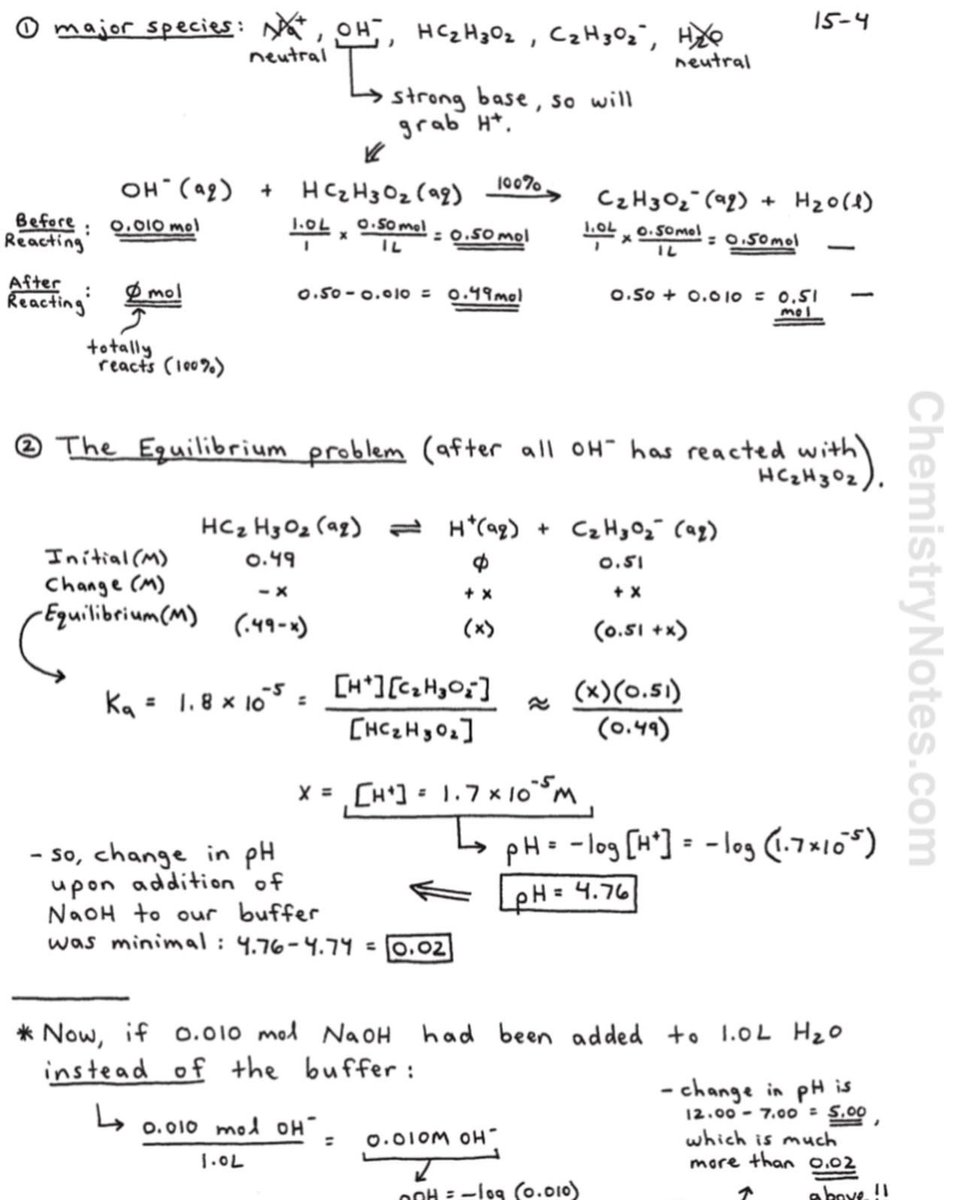 ① major species: Na⁺, OH⁻, HC₂H₃O₂, C₂H₃O₂⁻, H₂O 15-4
neutral neutral
strong base, so will
grab H⁺.
OH⁻(aq) + HC₂H₃O₂(aq) 100%→ C₂H₃O₂⁻(aq) + H₂O(l)
Before Reacting: 0.010 mol 1.0L/1 × 0.50mol/1L = 0.50mol 1.0L/1 × 0.50mol/1L = 0.50mol —
After Reacting: ∅ mol 0.50-0.010 = 0.49mol 0.50 + 0.010 = 0.51 mol —
totally
reacts (100%)
② The Equilibrium problem (after all OH⁻ has reacted with
HC₂H₃O₂).
HC₂H₃O₂(aq) ⇌ H⁺(aq) + C₂H₃O₂⁻(aq)
Initial(M) 0.49 ∅ 0.51
Change(M) -x +x +x
Equilibrium(M) (.49-x) (x) (0.51+x)
Ka = 1.8 × 10⁻⁵ = [H⁺][C₂H₃O₂⁻]/[HC₂H₃O₂] ≈ (x)(0.51)/(0.49)
x = [H⁺] = 1.7 × 10⁻⁵M
→ pH = -log[H⁺] = -log(1.7×10⁻⁵)
pH = 4.76
- so, change in pH
upon addition of
NaOH to our buffer
was minimal: 4.76-4.74 = 0.02
* Now, if 0.010 mol NaOH had been added to 1.0L H₂O
instead of the buffer:
→ 0.010 mol OH⁻/1.0L = 0.010M OH⁻
pOH = -log(0.010)
- change in pH is
12.00 - 7.00 = 5.00,
which is much
more than 0.02
above!!
ChemistryNotes.com